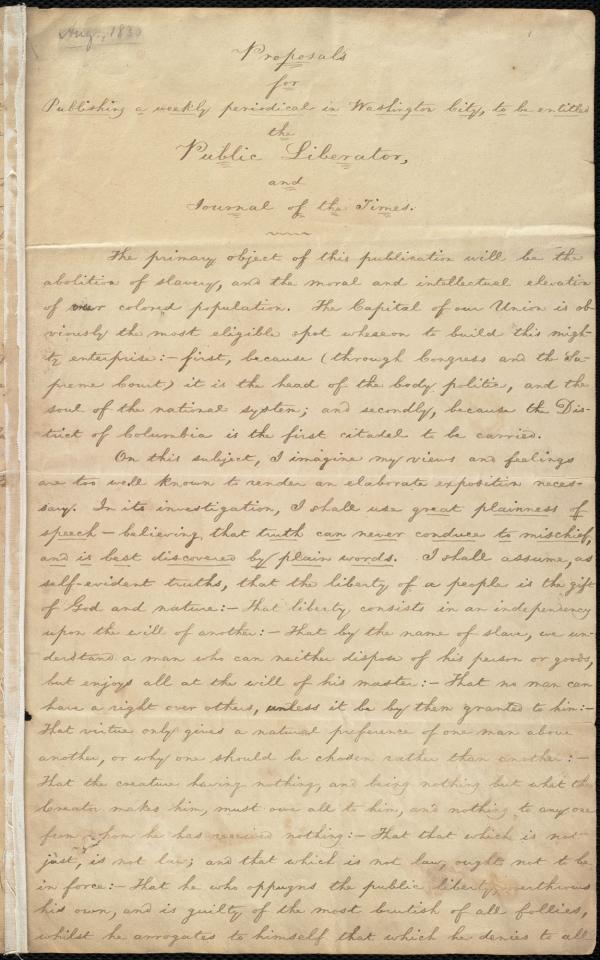 Aug., 1830
Proposals
for
Publishing a weekly periodical in Washington City, to be entitled
the
Public Liberator,
and
Journal of the Times.
The primary object of this publication will be the
abolition of slavery, and the moral and intellectual elevation
of our colored population. The Capital of our Union is ob-
viously the most eligible spot whereon to build this migh-
ty enterprise:— first, because (through Congress and the Su-
preme Court) it is the head of the body politic, and the
soul of the national system; and secondly, because the Dis-
trict of Columbia is the first citadel to be carried.
On this subject, I imagine my views and feelings
are too well known to render an elaborate exposition neces-
sary. In its investigation, I shall use great plainness of
speech — believing that truth can never conduce to mischief,
and is best discovered by plain words. I shall assume, as
self-evident truths, that the liberty of a people is the gift
of God and nature:— That liberty consists in an independency
upon the will of another:— That by the name of slave, we un-
derstand a man who can neither dispose of his person or goods,
but enjoys all at the will of his master:— That no man can
have a right over others, unless it be by them granted to him:—
That virtue only gives a natural preference of one man above
another, or why one should be chosen rather than another:—
That the creature having nothing, and being nothing but what the
Creator makes him, must owe all to him, and nothing to any one
from whom he has received nothing:— That that which is not
just, is not law; and that which is not law, ought not to be
in force:— That he who oppugns the public liberty, overthrows
his own, and is guilty of the most brutish of all follies,
whilst he arrogates to himself that which he denies to all